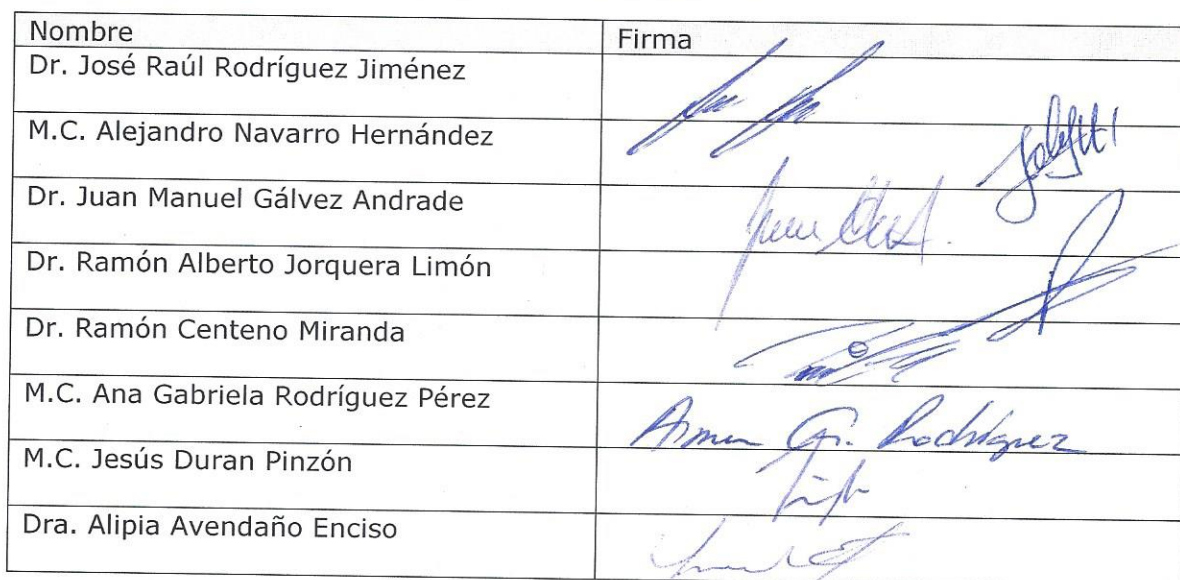 Nombre Firma
Dr. José Raúl Rodríguez Jiménez
M.C. Alejandro Navarro Hernández
Dr. Juan Manuel Gálvez Andrade
Dr. Ramón Alberto Jorquera Limón
Dr. Ramón Centeno Miranda
M.C. Ana Gabriela Rodríguez Pérez
Rodríguez
M.C. Jesús Duran Pinzón
Dra. Alipia Avendaño Enciso